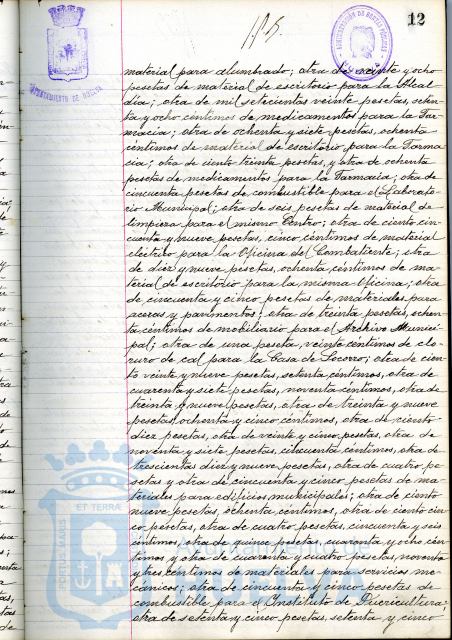 12
material para alumbrado; otra de veinte y ocho
pesetas de material de escritorio para la Alcal-
día; otra de mil setecientas veinte pesetas, ochen-
ta y ocho céntimos de medicamentos para la Far-
macia; otra de ochenta y siete pesetas, ochenta
céntimos de material de escritorio para la Farma
cia; otra de ciento treinta pesetas, y otra de ochenta
pesetas de medicamentos para la Farmacia; otra de
cincuenta pesetas de combustible para el Laborato-
rio Municipal; otra de seis pesetas de material de
limpieza para el mismo Centro; otra de ciento cin-
cuenta y nueve pesetas, cinco céntimos de material
eléctrico para la Oficina del Combatiente; otra
de diez y nueve pesetas, ochenta céntimos de ma-
terial de escritorio para la misma Oficina; otra
de cincuenta y cinco pesetas de materiales para
aceras y pavimentos; otra de treinta pesetas, ochen-
ta céntimos de mobiliario para el Archivo Munici-
pal; otra de una peseta veinte céntimos de clo-
ruro de cal para la Casa de Socorro; otra de cien-
to veinte y nueve pesetas, setenta céntimos, otra de
cuarenta y siete pesetas, noventa céntimos, otra de
treinta y nueve pesetas, otra de treinta y nueve
pesetas, ochenta y cinco céntimos, otra de ciento
diez pesetas, otra de veinte y cinco pesetas, otra de
noventa y siete pesetas, cincuenta céntimos, otra de
trescientas diez y nueve pesetas, otra de cuatro pe-
setas y otra de cincuenta y cinco pesetas de ma-
teriales para edificios municipales; otra de ciento
nueve pesetas, ochenta céntimos, otra de ciento cin
co pesetas, otra de cuatro pesetas, cincuenta y seis
céntimos, otra de quince pesetas, cuarenta y ocho cén-
timos y otra de cuarenta y cuatro pesetas, noventa
y tres céntimos de materiales para servicios me-
cánicos; otra de cincuenta y cinco pesetas de
combustible para el Instituto de Puericultura;
otra de setenta y cinco pesetas, setenta y cinco
AYUNTAMIENTO DE HUELVA
PORTUS MARIS
ET TERRÆ